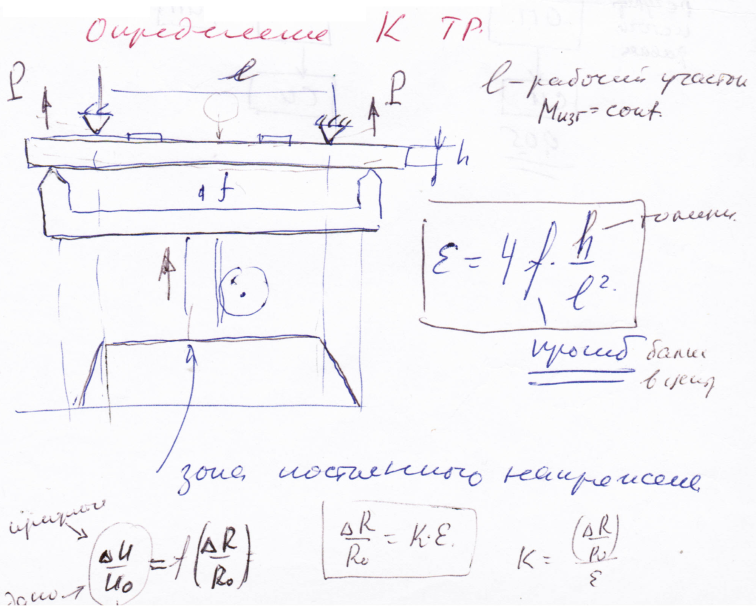 Определение К ТР.
P
l
P
l - рабочий участок
Mизг = cont.
h
f
ε = 4 f · h / l².
толщин.
прогиб балки
зона постоянного напряжения
ΔU/U₀ = f (ΔR/R₀)
ΔR/R₀ = K·ε.
K = (ΔR/R₀)/ε